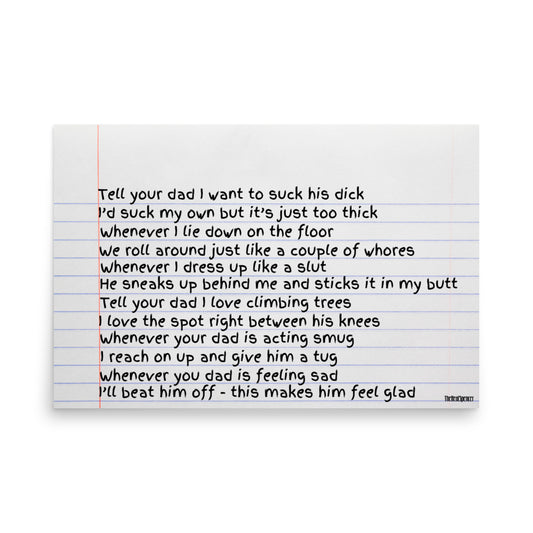 Tell your dad I want to suck his dick
I'd suck my own but it's just too thick
Whenever I lie down on the floor
We roll around just like a couple of whores
Whenever I dress up like a slut
He sneaks up behind me and sticks it in my butt
Tell your dad I love climbing trees
I love the spot right between his knees
Whenever your dad is acting smug
I reach on up and give him a tug
Whenever you dad is feeling sad
I'll beat him off - this makes him feel glad
TheRealSpencer